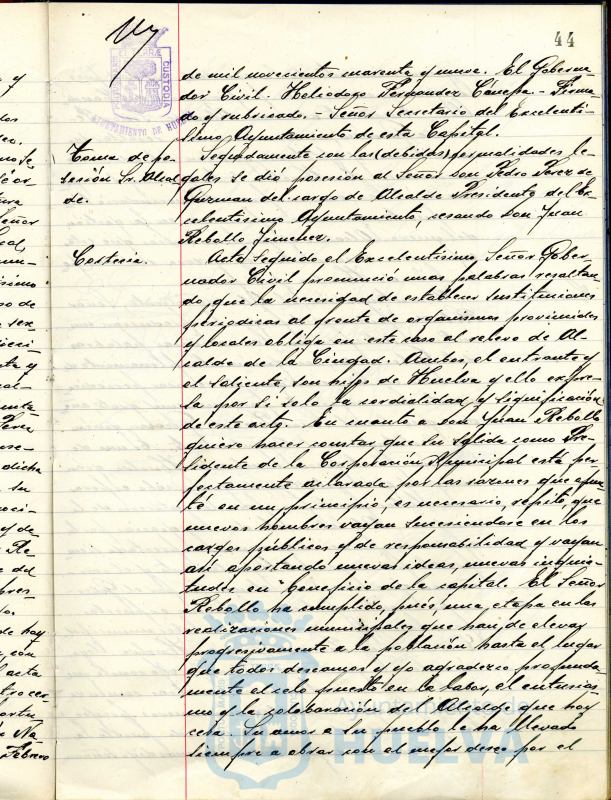 44
CUSTODIA
AYUNTAMIENTO DE HUELVA
de mil novecientos cuarenta y nueve. El Goberna-
dor Civil. Heliodoro Fernandez Cánepa - Firma-
do y rubricado. - Señor Secretario del Excelenti-
simo Ayuntamiento de esta Capital.
Toma de po-
sesión Sr. Alcal-
de.
Seguidamente con las (debidas) formalidades le-
gales se dió posesión al Señor Don Pedro Perez de
Guzman del cargo de Alcalde Presidente del Ex-
celentisimo Ayuntamiento, cesando Don Juan
Rebollo Jimenez.
Cortesia.
Acto seguido el Excelentisimo Señor Gober-
nador Civil pronunció unas palabras resaltan-
do, que la necesidad de establecer sustituciones
periodicas al frente de organismos provinciales
y locales obliga en este caso al relevo de Al-
calde de la Ciudad. Ambos, el entrante y
el saliente, son hijos de Huelva y ello expre-
sa por si solo la cordialidad y significación
de este acto. En cuanto a Don Juan Rebollo
quiero hacer constar que su salida como Pre-
sidente de la Corporación Municipal está per-
fectamente aclarada por las razones que apun-
té en un principio, es necesario, repito, que
nuevos hombres vayan sucediendose en los
cargos públicos y de responsabilidad y vayan
asi aportando nuevas ideas, nuevas inquie-
tudes en beneficio de la capital. El Señor
Rebollo ha cumplido, pués, una, etapa en las
realizaciones municipales que han de elevar
progresivamente a la población hasta el lugar
que todos deseamos y yo agradezco profunda-
mente el celo puesto en la labor, el entusias-
mo y la colaboración del Alcalde que hoy
cesa. Su amor a su pueblo le ha llevado
siempre a obrar con el mejor deseo por el
Ayuntamiento de
HUELVA